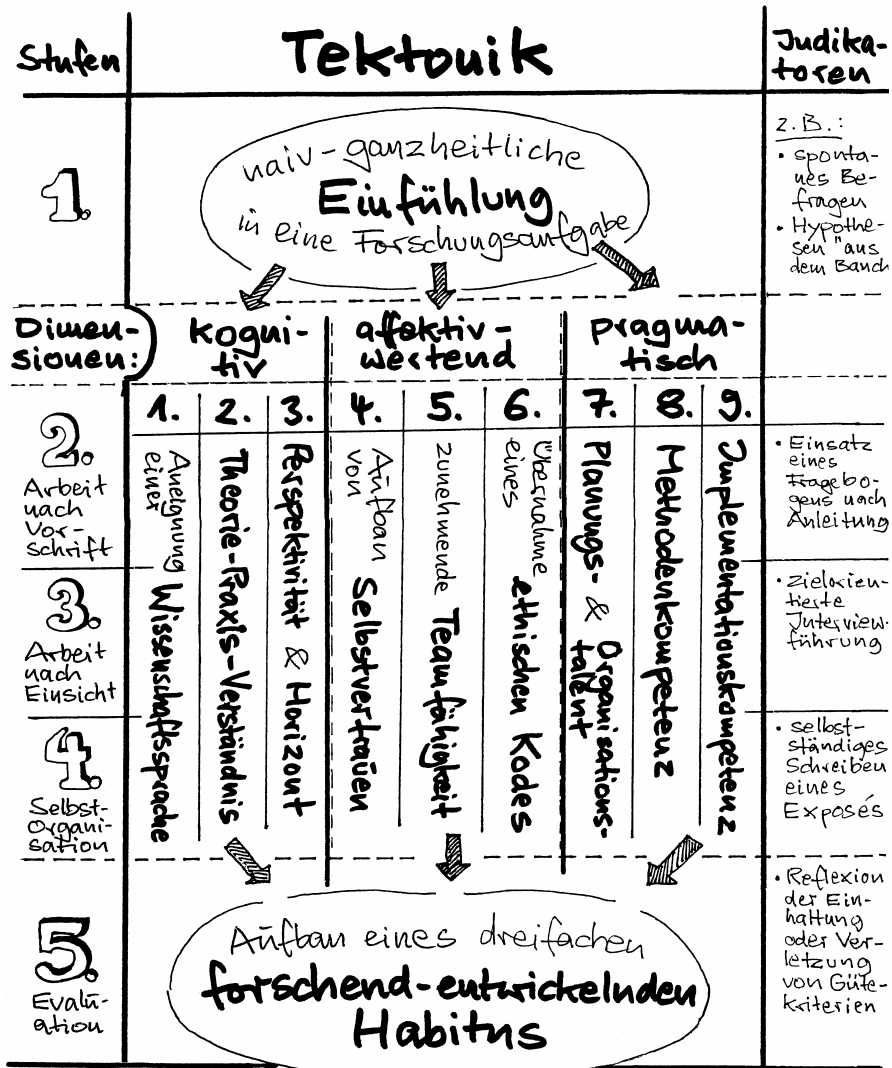 Stufen
Tektonik
Indika-
toren
1.
naiv-ganzheitliche
Einfühlung
in eine Forschungsaufgabe
z.B.:
• sponta-
nes Be-
fragen
• Hypothe-
sen "aus
dem Bauch
Dimen-
sionen:
kogni-
tiv
affektiv-
wertend
pragma-
tisch
1.
2.
3.
4.
5.
6.
7.
8.
9.
2.
Arbeit
nach
Vor-
schrift
3.
Arbeit
nach
Einsicht
4.
Selbst-
Organi-
sation
Aneignung
einer
Wissenschaftssprache
Theorie-Praxis-Verständnis
Perspektivität & Horizont
Aufbau
von
Selbstvertrauen
zunehmende Teamfähigkeit
Übernahme
eines
ethischen Kodes
Planungs- & Organisations-
talent
Methodenkompetenz
Implementationskompetenz
• Einsatz
eines
Fragebo-
gens nach
Anleitung
• zielorien-
tierte
Interview-
führung
• selbst-
ständiges
Schreiben
eines
Exposés
5.
Evalu-
ation
Aufbau eines dreifachen
forschend-entwickelnden
Habitus
• Reflexion
der Ein-
haltung
oder Ver-
letzung
von Güte-
kriterien